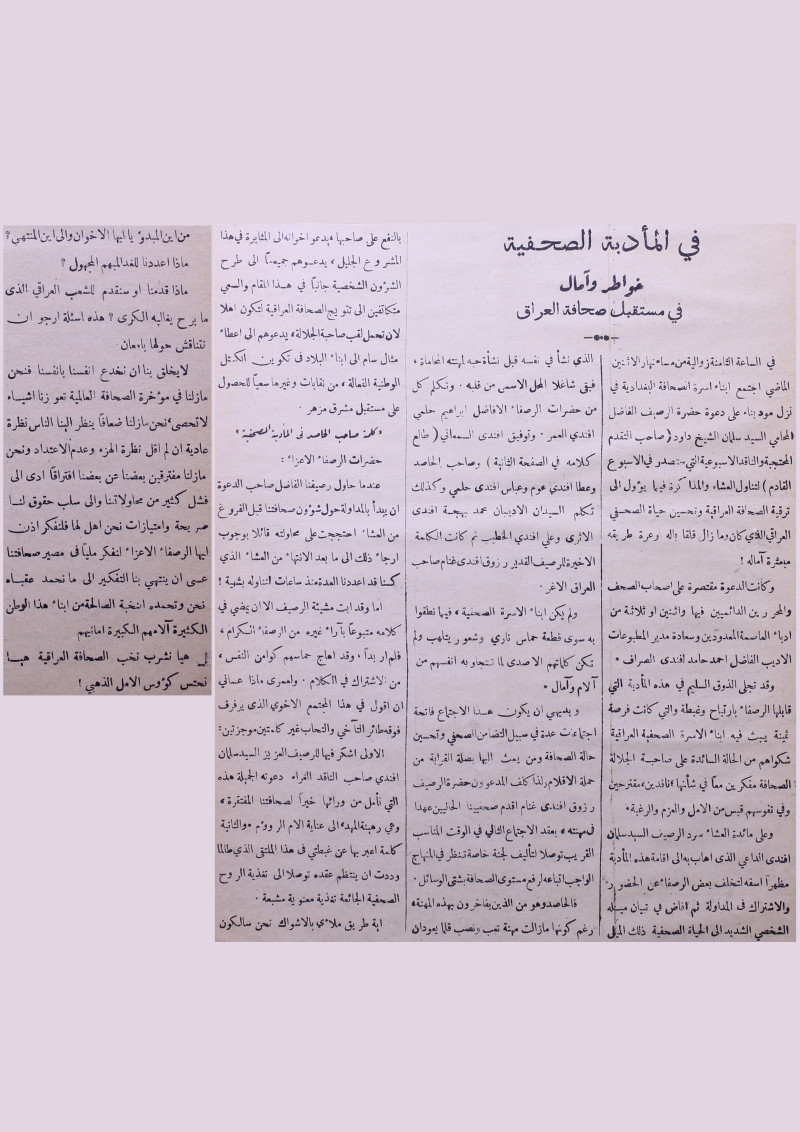 في المأدبة الصحفية
خواطر وآمال
في مستقبل صحافة العراق
في الساعة الثامنة زوالية من مساء نهار الاثنين
الماضي اجتمع ابناء اسرة الصحافة البغدادية في
نزل مود بناء على دعوة حضرة الرصيف الفاضل
المحامي السيد سلمان الشيخ داود (صاحب التقدم
المحتجبة والناقد الاسبوعية التي ستصدر في الاسبوع
القادم) لتناول العشاء والمذاكرة فيما يؤول الى
ترقية الصحافة العراقية وتحسين حياة الصحفي
العراقي الذي كان وما زال قلقا باله وعرة طريقه
مبعثرة آماله !
وكانت الدعوة مقتصرة على اصحاب الصحف
والمحررين الدائميين فيها واثنين او ثلاثة من
ادباء العاصمة المعدودين وسعادة مدير المطبوعات
الاديب الفاضل احمد حامد افندي الصراف •
وقد تجلى الذوق السليم في هذه المأدبة التي
قابلها الرصفاء بارتياح وغبطة والتي كانت فرصة
ثمينة يبث فيه ابناء الاسرة الصحفية العراقية
شكواهم من الحالة السائدة على صاحبة الجلالة
الصحافة مفكرين معاً في شأنها ناقدين، مقترحين
وفي نفوسهم قبس من الامل والعزم والرغبة•
وعلى مائدة العشاء سرد الرصيف السيد سلمان
افندي الداعي الذي اهاب به الى اقامة هذه المأدبة
مظهراً اسفه لتخلف بعض الرصفاء عن الحضور
والاشتراك في المداولة ثم افاض في تبيان ميله
الشخصي الشديد الى الحياة الصحفية ذلك الميل
الذي نشأ في نفسه قبل نشأة حبه لمهنته المحاماة،
فبقي شاغلا المحل الاسمى من قلبه . وتكلم كل
من حضرات الرصفاء الافاضل ابراهيم حلمي
افندي العمر . وتوفيق افندي السمعاني (طالع
كلامه في الصفحة الثانية) وصاحب الحاصد
وعطا افندي عوم وعباس افندي حلمي وكذلك
تكلم السيدان الاديبان محمد بهجة افندي
الاثري وعلي افندي الخطيب ثم كانت الكلمة
الاخيرة للرصيف القدير رزوق افندي غنام صاحب
العراق الاغر .
ولم يكن ابناء الاسرة الصحفية ، فيما نطقوا
به سوى قطعة حماس ناري وشعور يتلهب ولم
تكن كلماتهم الا صدى لما تتجاوبه انفسهم من
آلام وآمال •
وبديهي ان يكون هذا الاجتماع فاتحة
اجتماعات عدة في سبيل التضامن الصحفي وتحسين
حالة الصحافة ومن يمت اليها بصلة القرابة من
حملة الاقلام لذا كلف المدعوون حضرة الرصيف
رزوق افندي غنام اقدم صحفيينا الحاليين عهدا
في مهنته ، بعقد الاجتماع الثاني في الوقت المناسب
القريب توصلا لتأليف لجنة خاصة تنظر في المنهاج
الواجب اتباعه لرفع مستوى الصحافة بشتى الوسائل .
فالحاصد وهو من الذين يفاخرون بهذه المهنة ،
رغم كونها مازالت مهنة تعب ونصب قلما يعودان
بالنفع على صاحبها، يدعو اخوانه الى المثابرة في هذا
المشروع الجليل ، يدعوهم جميعا الى طرح
الشؤون الشخصية جانباً في هذا المقام والسعي
متكاتفين الى تتويج الصحافة العراقية لتكون اهلا
لان تحمل لقب صاحبة الجلالة، يدعوهم الى اعطاء
مثال سام الى ابناء البلاد في تكوين الكتل
الوطنية الفعالة ، من نقابات وغيرها سعياً للحصول
على مستقبل مشرق مزهر .
«كلمة صاحب الحاصد في المأدبة الصحفية»
حضرات الرصفاء الاعزاء :
عندما حاول رصيفنا الفاضل صاحب الدعوة
ان يبدأ بالمداولة حول شؤون صحافتنا قبل الفروغ
من العشاء احتججت على محاولته قائلا بوجوب
ارجاء ذلك الى ما بعد الانتهاء من العشاء الذي
كنا قد اعددنا المعدة منذ ساعات لتناوله بشهية !
اما وقد ابت مشيئة الرصيف الا ان يمضي في
كلامه متبوعاً بآراء غيره من الرصفاء الكرام ،
فلم ار بداً ، وقد اهاج حماسهم كوامن النفس ،
من الاشتراك في الكلام . ولعمري ماذا عساني
ان اقول في هذا المجتمع الاخوي الذي يرفرف
فوقه طائر التآخي والتحاب غير كلمتين موجزتين:
الاولى اشكر فيها للرصيف العزيز السيد سلمان
افندي صاحب الناقد الغراء دعوته الجميلة هذه
التي نأمل من ورائها خيراً لصحافتنا المفتقرة ،
وهي رهينة المهد ، الى عناية الام الرؤوم . والثانية
كلمة اعبر بها عن غبطتي في هذا الملتقى الذي طالما
وددت ان ينتظم عقده توصلا الى تغذية الروح
الصحفية الجائعة تغذية معنوية مشبعة .
اية طريق ملأى بالاشواك نحن سالكون
من اين المبدؤ يا ايها الاخوان والى اين المنتهي ؟
ماذا اعددنا للغد المبهم المجهول ؟
ماذا قدمنا او سنقدم للشعب العراقي الذي
ما برح يغالبه الكرى ؟ هذه اسئلة ارجو ان
نتناقش حولها بامعان.
لا يخلق بنا ان نخدع انفسنا بانفسنا فنحن
مازلنا في مؤخرة الصحافة العالمية تعوزنا اشياء
لا تحصى، نحن مازلنا ضعافاً ينظر الينا الناس نظرة
عادية ان لم اقل نظرة الهزء وعدم الاعتداد ونحن
مازلنا مفترقين بعضنا عن بعضنا افتراقاً ادى الى
فشل كثير من محاولاتنا والى سلب حقوق لنا
صريحة وامتيازات نحن اهل لها فلنفكر اذن
ايها الرصفاء الاعزاء لنفكر ملياً في مصير صحافتنا
عسى ان ينتهي بنا التفكير الى ما نحمد عقباه
نحن وتحمده النخبة الصالحة من ابناء هذا الوطن
الكثيرة آلامهم الكبيرة امانيهم
هيا نشرب نخب الصحافة العراقية هيا
نحتس كؤوس الامل الذهبي !